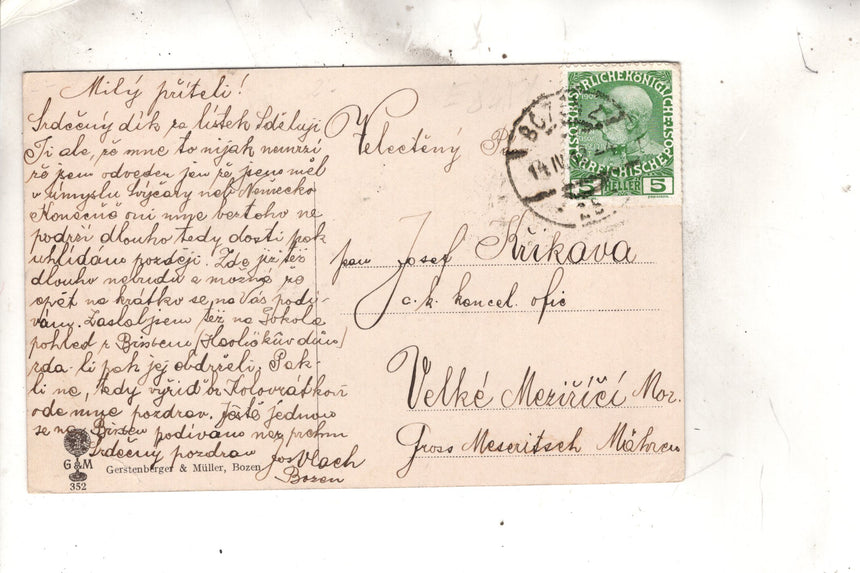 Milý příteli!
Srdečný dík za lístek Sděluji
Ti ale, že mne to nijak nemrzí
že jsem odveden jen že jsem měl
v úmyslu Švýcary neb Německo
Konečně oni mne bez toho ne
podrží dlouho tedy dosti pak
uhlídáno později. Zde již též
dlouho nebudu a možná že
opět na krátko se na Vás podí-
vám. Zaslal jsem též na Sokola
pohled z Brixenu (Havlíčkův dům)
zda-li pak jej obdrželi. Pak-
li ne, tedy vyřiď br. Kolovrátkovi
ode mne pozdrav. Ještě jednou
se na Brixen podívám než
Srdečný pozdrav Jos Vlach
Bozen
G & M
352
Gerstenberger & Müller, Bozen
Velectěný P
BOZEN 2
14 IV
KAISERLICHE KÖNIGLICHE ÖSTERREICHISCHE POST
5 HELLER 5
pan Josef Křikava
c. k. koncel. ofic
Velké Meziříčí Mor.
Gross Meseritsch Mähren